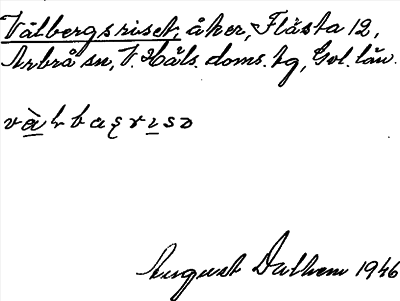 Vålbergsriset, åker, Flästa 12,
Arbrå sn, V. Häls. doms. hg, Gvl. län.
vàlbaʂrisə
August Dalhem 1946